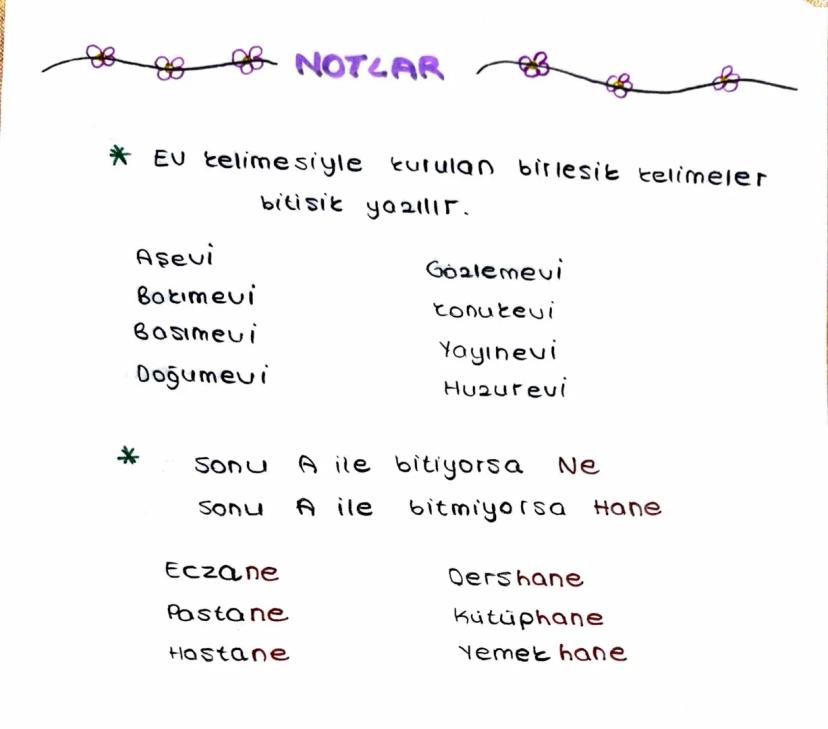 NOTLAR
* Ev kelimesiyle kurulan birlesik kelimeler
bitisik yazılır.
Aşevi Gözlemevi
Bakımevi Konukevi
Basımevi Yayınevi
Doğumevi Huzurevi
* Sonu A ile bitiyorsa Ne
Sonu A ile bitmiyorsa Hane
Eczane Dershane
Pastane Kütüphane
Hastane Yemekhane